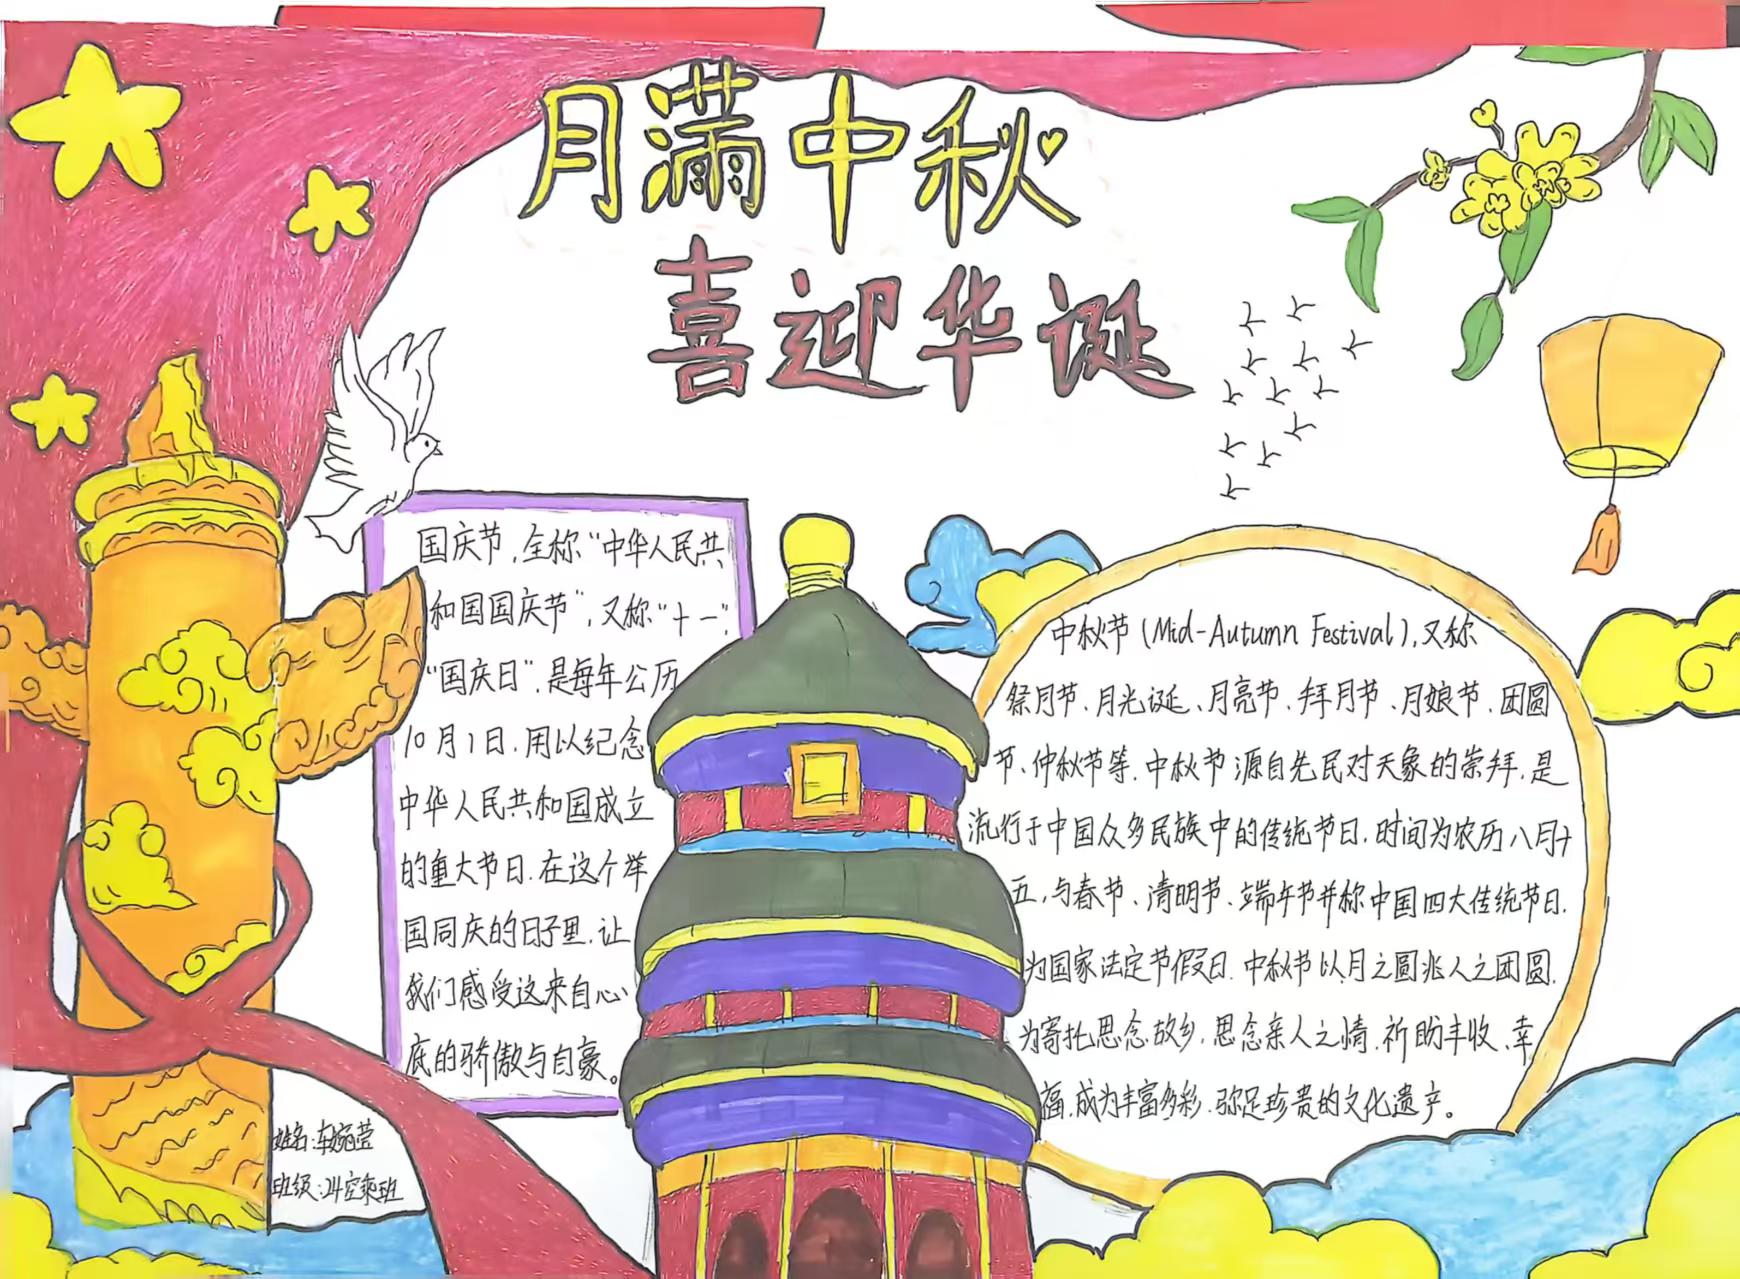 月满中秋
喜迎华诞
国庆节,全称“中华人民共
和国国庆节”,又称“十一”,
“国庆日”,是每年公历
10月1日,用以纪念
中华人民共和国成立
的重大节日.在这个举
国同庆的日子里,让
我们感受这来自心
底的骄傲与自豪。
中秋节(Mid-Autumn Festival),又称
祭月节、月光诞、月亮节、拜月节、月娘节、团圆
节、仲秋节等,中秋节源自先民对天象的崇拜,是
流行于中国众多民族中的传统节日,时间为农历八月十
五,与春节、清明节、端午节并称中国四大传统节日.
为国家法定节假日.中秋节以月之圆兆人之团圆.
为寄托思念故乡,思念亲人之情,祈助丰收、幸
福,成为丰富多彩,弥足珍贵的文化遗产。
姓名:车婉莹
班级:24空乘班